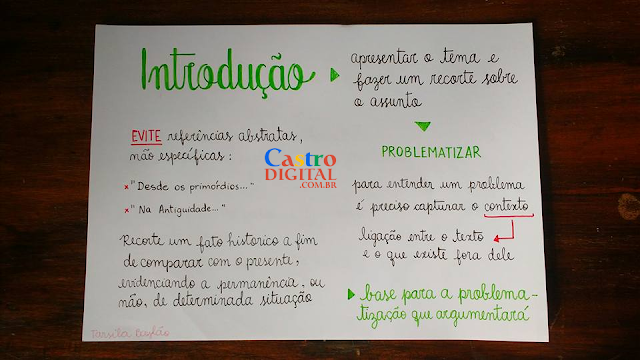 Introdução
apresentar o tema e
fazer um recorte sobre
o assunto
PROBLEMATIZAR
para entender um problema
é preciso capturar o contexto
ligação entre o texto
e o que existe fora dele
base para a problema-
tização que argumentará
EVITE referências abstratas,
não específicas:
x "Desde os primórdios..."
x "Na Antiguidade..."
Recorte um fato histórico a fim
de comparar com o presente,
evidenciando a permanência, ou
não, de determinada situação
Castro
DIGITAL
.COM.BR